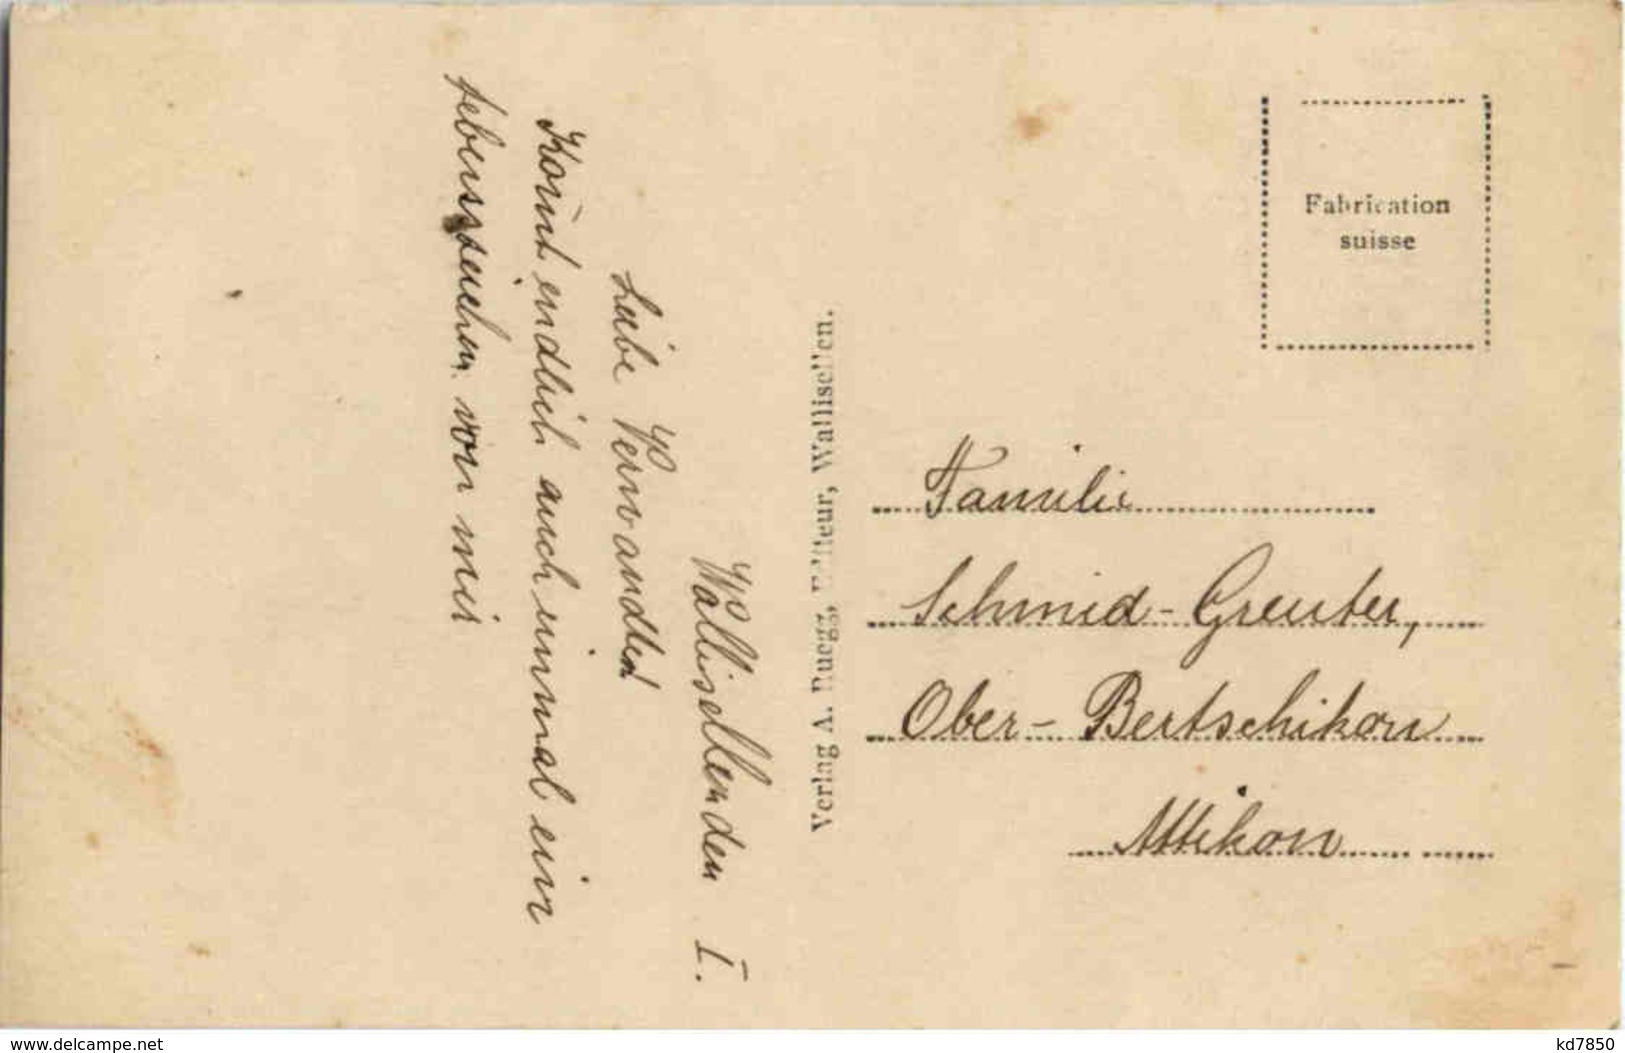 Wallisellen den I.
Liebe Verwandten
Kom̄t endlich auch einmal ein
Lebenszeichen von mir
Verlag A. Ruegg, Editeur, Wallisellen.
Fabrication
suisse
Familie
Schmid-Greuter,
Ober-Bertschikon
Attikon
www.delcampe.net
kd7850